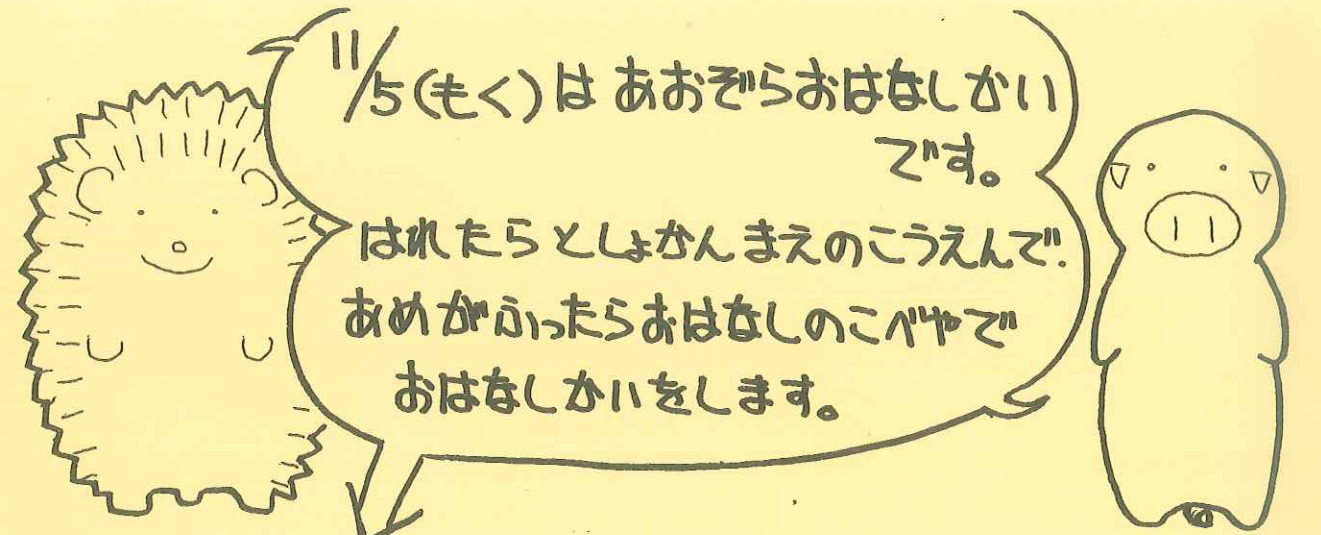 11/5(もく)は あおぞらおはなしかい
です。
はれたら としょかんまえのこうえんで、
あめがふったらおはなしのこべやで
おはなしかいをします。